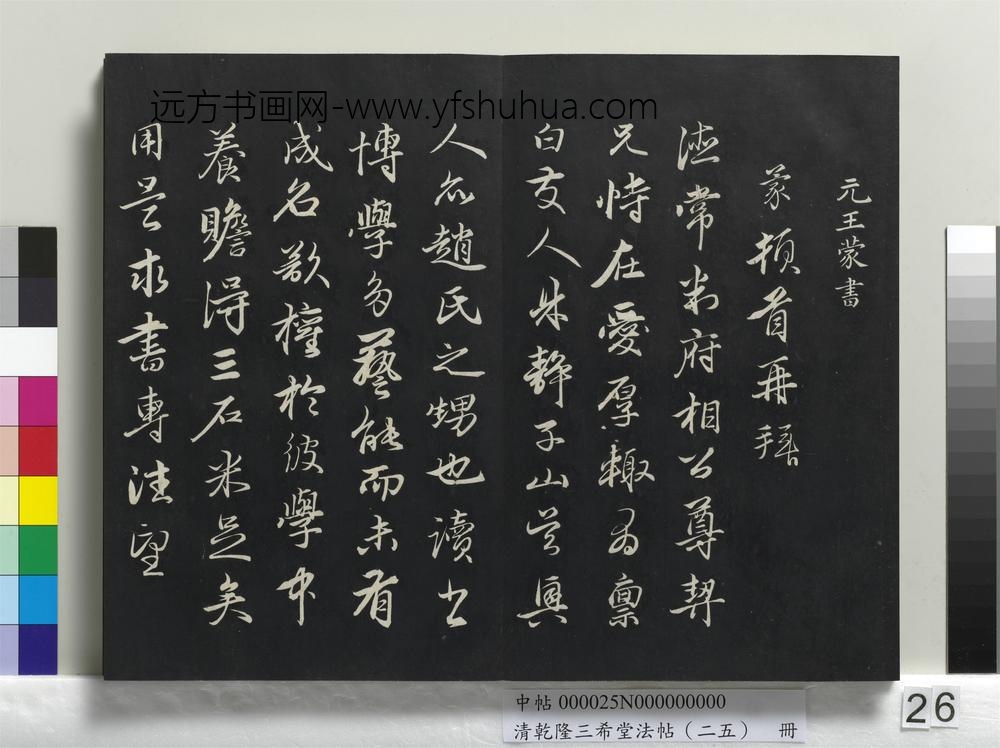 远方书画网-www.yfshuhua.com
元王蒙書
蒙頓首再拜
德常判府相公尊契
兄恃在愛厚輒為禀
白友人朱靜子山吳興
人亦趙氏之甥也讀書
博學多藝能而未有
成名欲權於彼學中
養贍得三石米足矣
用是求書專注望
中帖 000025N000000000
清乾隆三希堂法帖(二五) 冊
26